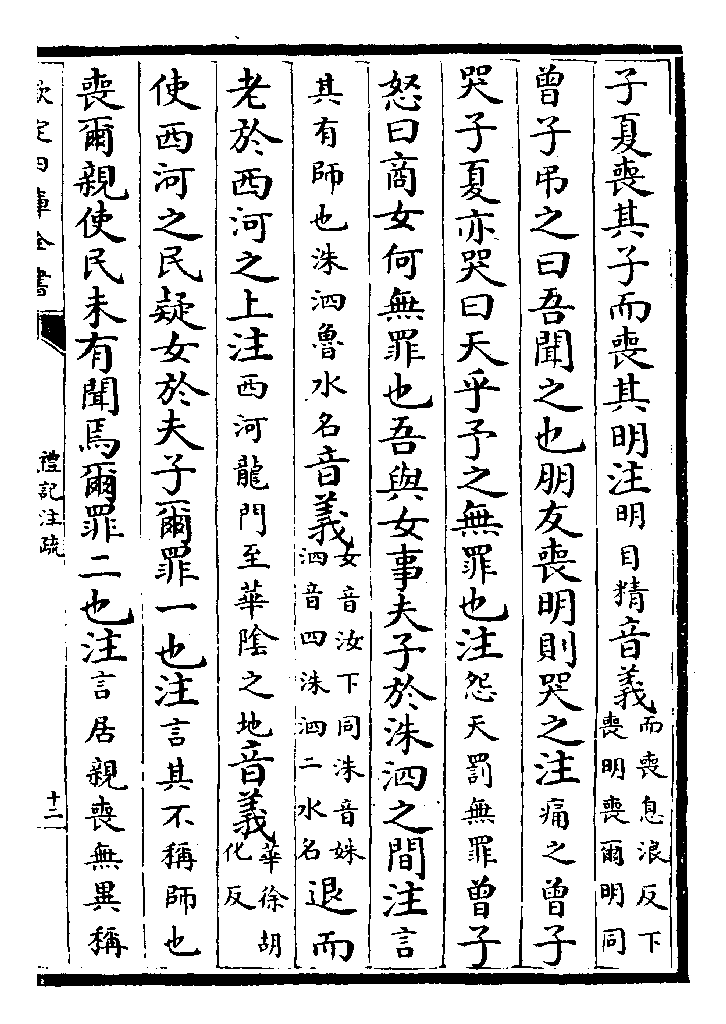 子夏喪其子而喪其明注明目精音義
而喪息浪反下
喪明喪爾明同
曾子吊之曰吾聞之也朋友喪明則哭之注痛之曾子
哭子夏亦哭曰天乎予之無罪也注怨天罰無罪曾子
怒曰商女何無罪也吾與女事夫子於洙泗之間注言
其有師也洙泗魯水名音義
女音汝下同洙音姝
泗音四洙泗二水名
退而
老於西河之上注西河龍門至華陰之地音義
華徐胡
化反
使西河之民疑女於夫子爾罪一也注言其不稱師也
喪爾親使民未有聞焉爾罪二也注言居親喪無異稱
欽定四庫全書
禮記注疏
十二